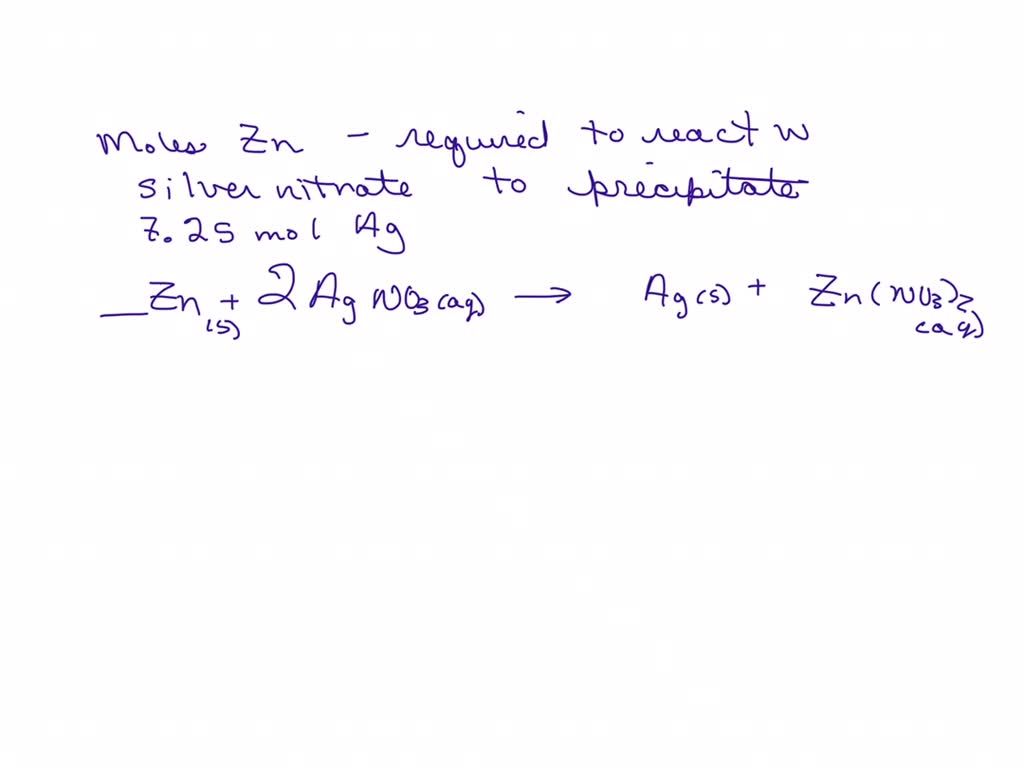 Moles Zn - required to react w
silver nitrate to precipitate
7.25 mol Ag
__Zn(s) + 2AgNO3(aq) → Ag(s) + Zn(NO3)2(aq)